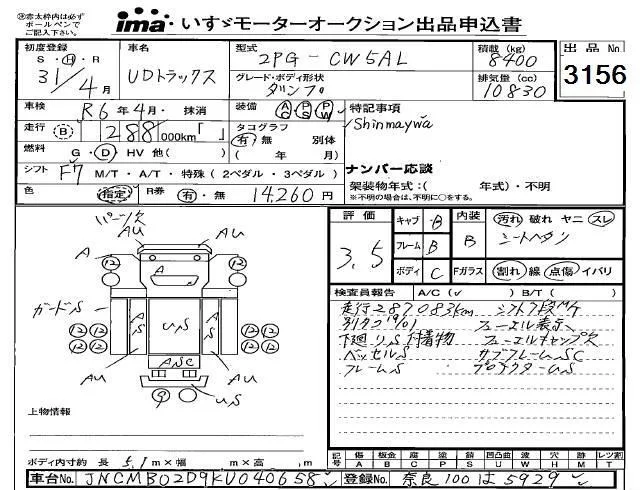 ㊟赤太枠内は必ずボールペンでご記入下さい。
ima いすゞモーターオークション出品申込書
初度登録 S・Ⓗ・R 31年4月
車名 UDトラックス
型式 2PG-CW5AL
積載(kg) 8400
グレード・ボディ形状 ダンプ
排気量(cc) 10830
出品No. 3156
車検 R6年4月・抹消
装備 AC PS PW
特記事項
Shinmaywa
走行 Ⓑ 288,000km「 」
タコグラフ 有・無 別体
( 年 月)
燃料 G・Ⓓ HV 他( )
シフト F7 M/T・A/T・特殊(2ペダル・3ペダル)
ナンバー応談
架装物年式:( 年式)・不明
※不明の場合は、不明に○をする。
色 (指定) R券 有・無 14,260円
AU AU
A A
⑫ ⑫
ガードS
AS US AS
⑫⑫ ⑫⑫
⑫⑫ ⑫⑫
A SC
AU AU
⑨ US
上物情報
ボディ内寸約 長 5.1m×幅 m×高 m
評価 3.5
キャブ B
フレーム B
ボディ C
内装 B
汚れ 破れ ヤニ スレ
シートヘタリ
Fガラス 割れ 線 点傷 イパリ
検査員報告 A/C(✓) B/T( )
走行287083km シフト7段M/T
下廻りS 付着物
フューエル表示
フューエルキャップ欠
ベッセルS サブフレームSC
フレームS プロテクターUS
記号 傷A 板金B 腐C 塗P 錆S 凹凸曲U W 穴H 跡M レツ割T
車台No. JNCMB02D9KU040658
登録No. 奈良100は5929